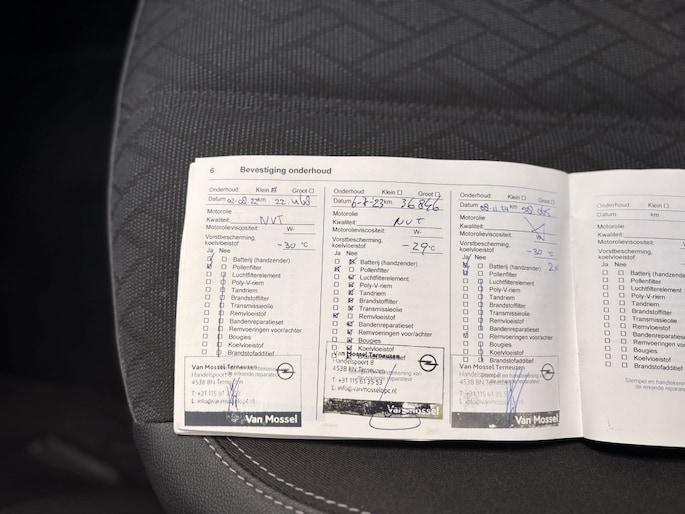 6 Bevestiging onderhoud
Onderhoud: Klein Groot
Datum 02-08-22 km 22.468
Motorolie
Kwaliteit: NVT
Motorolieviscositeit: W-
Vorstbescherming, koelvloeistof -30 °C
Ja Nee
Batterij (handzender)
Pollenfilter
Luchtfilterelement
Poly-V-riem
Tandriem
Brandstoffilter
Transmissieolie
Remvloeistof
Bandenreparatieset
Remvoeringen voor/achter
Bougies
Koelvloeistof
Brandstofadditief
Van Mossel Terneuzen
Handelspoort 8
4538 BN Terneuzen
Van Mossel
Onderhoud: Klein Groot
Datum 6-7-23 km 36846
Motorolie
Kwaliteit: NVT
Motorolieviscositeit: W-
Vorstbescherming, koelvloeistof -29 °C
Ja Nee
Batterij (handzender)
Pollenfilter
Luchtfilterelement
Poly-V-riem
Tandriem
Brandstoffilter
Transmissieolie
Remvloeistof
Bandenreparatieset
Remvoeringen voor/achter
Bougies
Koelvloeistof
Van Mossel Terneuzen
Handelspoort 8
4538 BN Terneuzen
T: +31 115 61 35 53
Van Mossel
Onderhoud: Klein Groot
Datum km
Motorolie
Kwaliteit:
Motorolieviscositeit: W-
Vorstbescherming, koelvloeistof -30 °C
Ja Nee
Batterij (handzender) 2x
Pollenfilter
Luchtfilterelement
Poly-V-riem
Tandriem
Brandstoffilter
Transmissieolie
Remvloeistof
Bandenreparatieset
Remvoeringen voor/achter
Bougies
Koelvloeistof
Brandstofadditief
Van Mossel Terneuzen
Handelspoort 8
4538 BN Terneuzen
Van Mossel
Onderhoud: Klein
Datum km
Motorolie
Kwaliteit:
Motorolieviscositeit: W-
Vorstbescherming, koelvloeistof
Ja Nee
Batterij (handzender)
Pollenfilter
Luchtfilterelement
Poly-V-riem
Tandriem
Brandstoffilter
Transmissieolie
Remvloeistof
Bandenreparatieset
Remvoeringen
Bougies
Koelvloeistof
Brandstofadditief